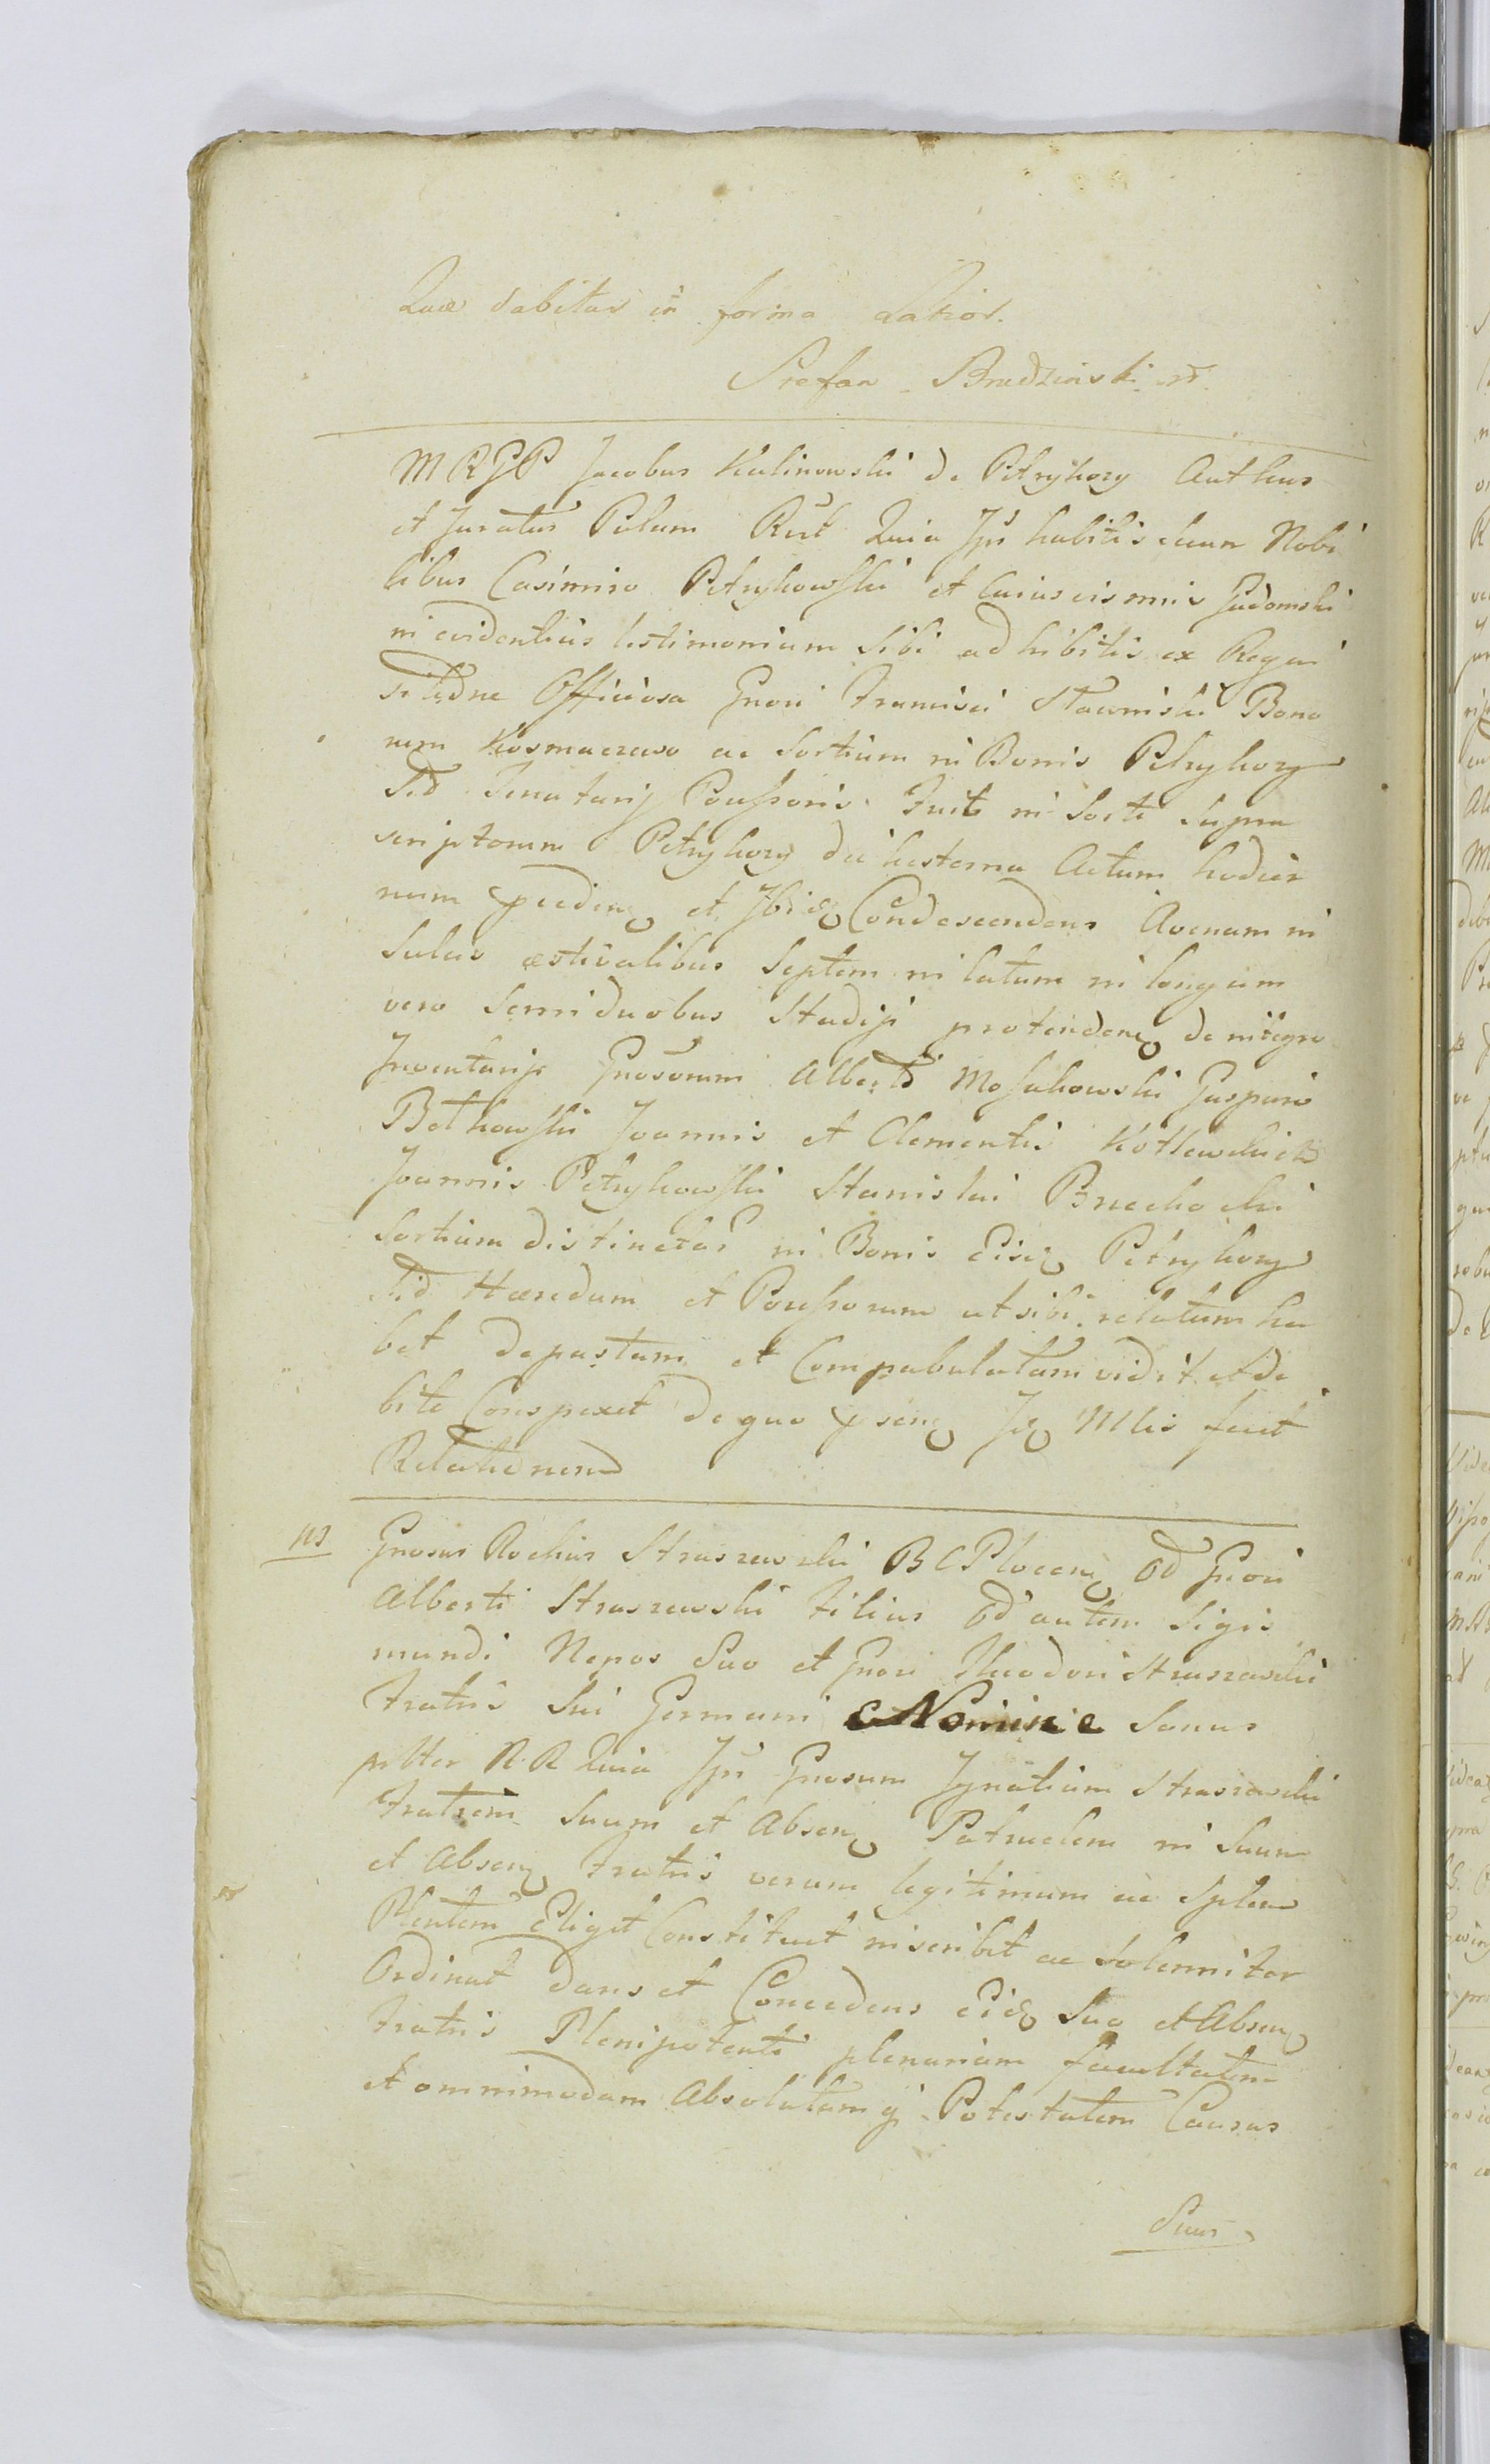 Quæ dabitur in forma Latior.
Stefan Brudzinski mp
MRGP Jacobus Kalinowski de Petrykozy Authus
et Juratus Palam Rlt Quia Ips habitis secum Nobi
libus Casimiro Petrykowski et Gadomski
in evidentius testimonium sibi adhibitis ex Requi
sitidne Officiosa Gnosi Francisci Slawinski Bono
rum Kosmaczewo ac Sortium in Bonis Petrykozy
Sid Tenutarij Possessoris fuit in Sorte supra
scriptorum Petrykozy die hesterna Actum hodier
num pcedenq et Ibidq Condescendens Avenam in
Sulcis æstivalibus Septem in latum in longum
vero Semiduobus Stadijs protendenq de integro
Inventarijs Gnosorum Alberti Mosakowski Gasparis
Betkowski Joannis et Clementis Kotlewskich
Joannis Petrykowski Stanislai Brzechocki
Sortium distinctar in Bonis Eisq Petrykozy
Sid Hæredum et Possessorum ut sibi relatum ha
bet depastam et Compabulatam vidit et de
bite Conspexit de quo psenq Jq Mlis fecit
Relationem
ns Gnosus Rochus Straszewski BCPlocenq Gnosi
Alberti Straszewski filius autem Sigis
mundi Nepos Suo et Gnosi Theodori Straszewski
fratris Sui Germani Nomine Sanus
pvlter R.R Quia Ips Gnosum Ignatium Straszewski
fratrem Suum et Absenq Patruelem in Suum
et Absenq fratris verum legitimum ac Splem
Plentem Eligit Constituit inscribit ac Solenniter
Ordinat dans et Concedens Eidq Suo et Absenq
fratris Plenipotenti plenariam facultatem
et omnimodam Absolutamq Potestatem Causas
Suas